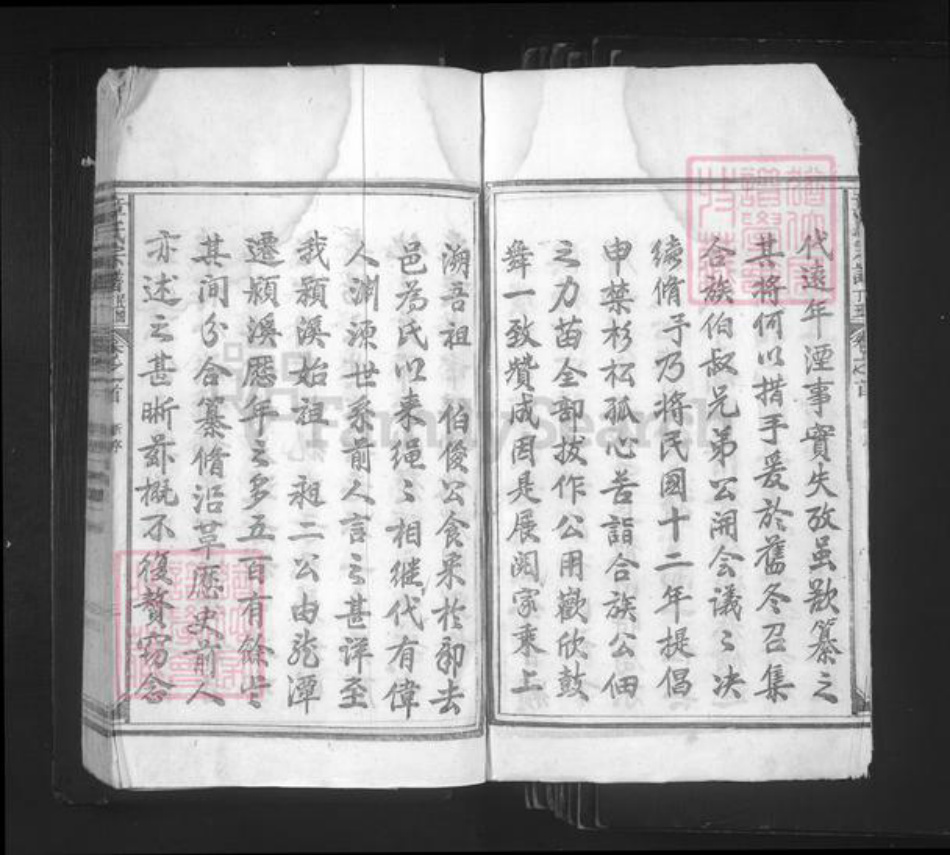 代遠年湮事實失攷虽欲纂之
其將何以措手爰於舊冬召集
合族伯叔兄弟公開会議〻决
續脩予乃將民國十二年提倡
申禁杉松孤心苦詣合族公佃
之力苗全部拔作公用歡欣鼓
舞一致贊成因是展阅家乘上
溯吾祖 伯俊公食采於郭去
邑為氏以来繩〻相继代有偉
人渊源世系前人言之甚详至
我潁溪始祖 祖二公由龍潭
遷潁溪歷年之多五百有餘歲
其间分合纂脩沿革歷史前人
亦述之甚晰玆概不復贅窃念
章氏宗譜
FamilySearch